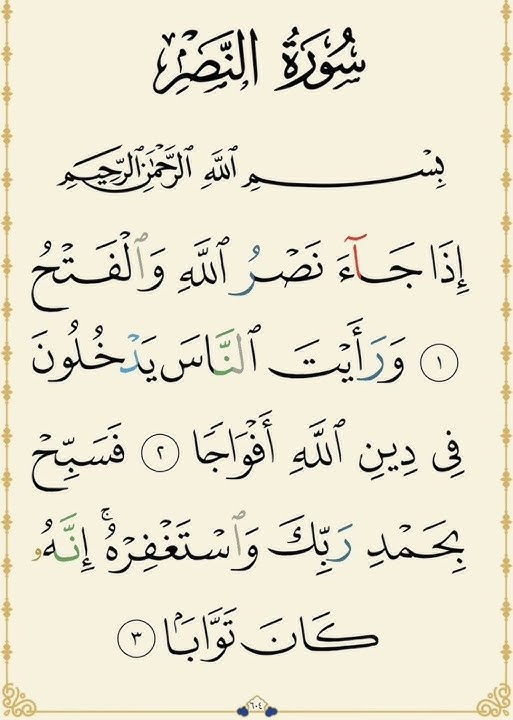 سُورَةُ النَّصْرِ
بِسْمِ ٱللَّهِ ٱلرَّحْمَٰنِ ٱلرَّحِيمِ
إِذَا جَآءَ نَصْرُ ٱللَّهِ وَٱلْفَتْحُ
١ وَرَأَيْتَ ٱلنَّاسَ يَدْخُلُونَ
فِى دِينِ ٱللَّهِ أَفْوَاجًا ٢ فَسَبِّحْ
بِحَمْدِ رَبِّكَ وَٱسْتَغْفِرْهُ ۚ إِنَّهُۥ
كَانَ تَوَّابًۢا ٣
٦٠٤